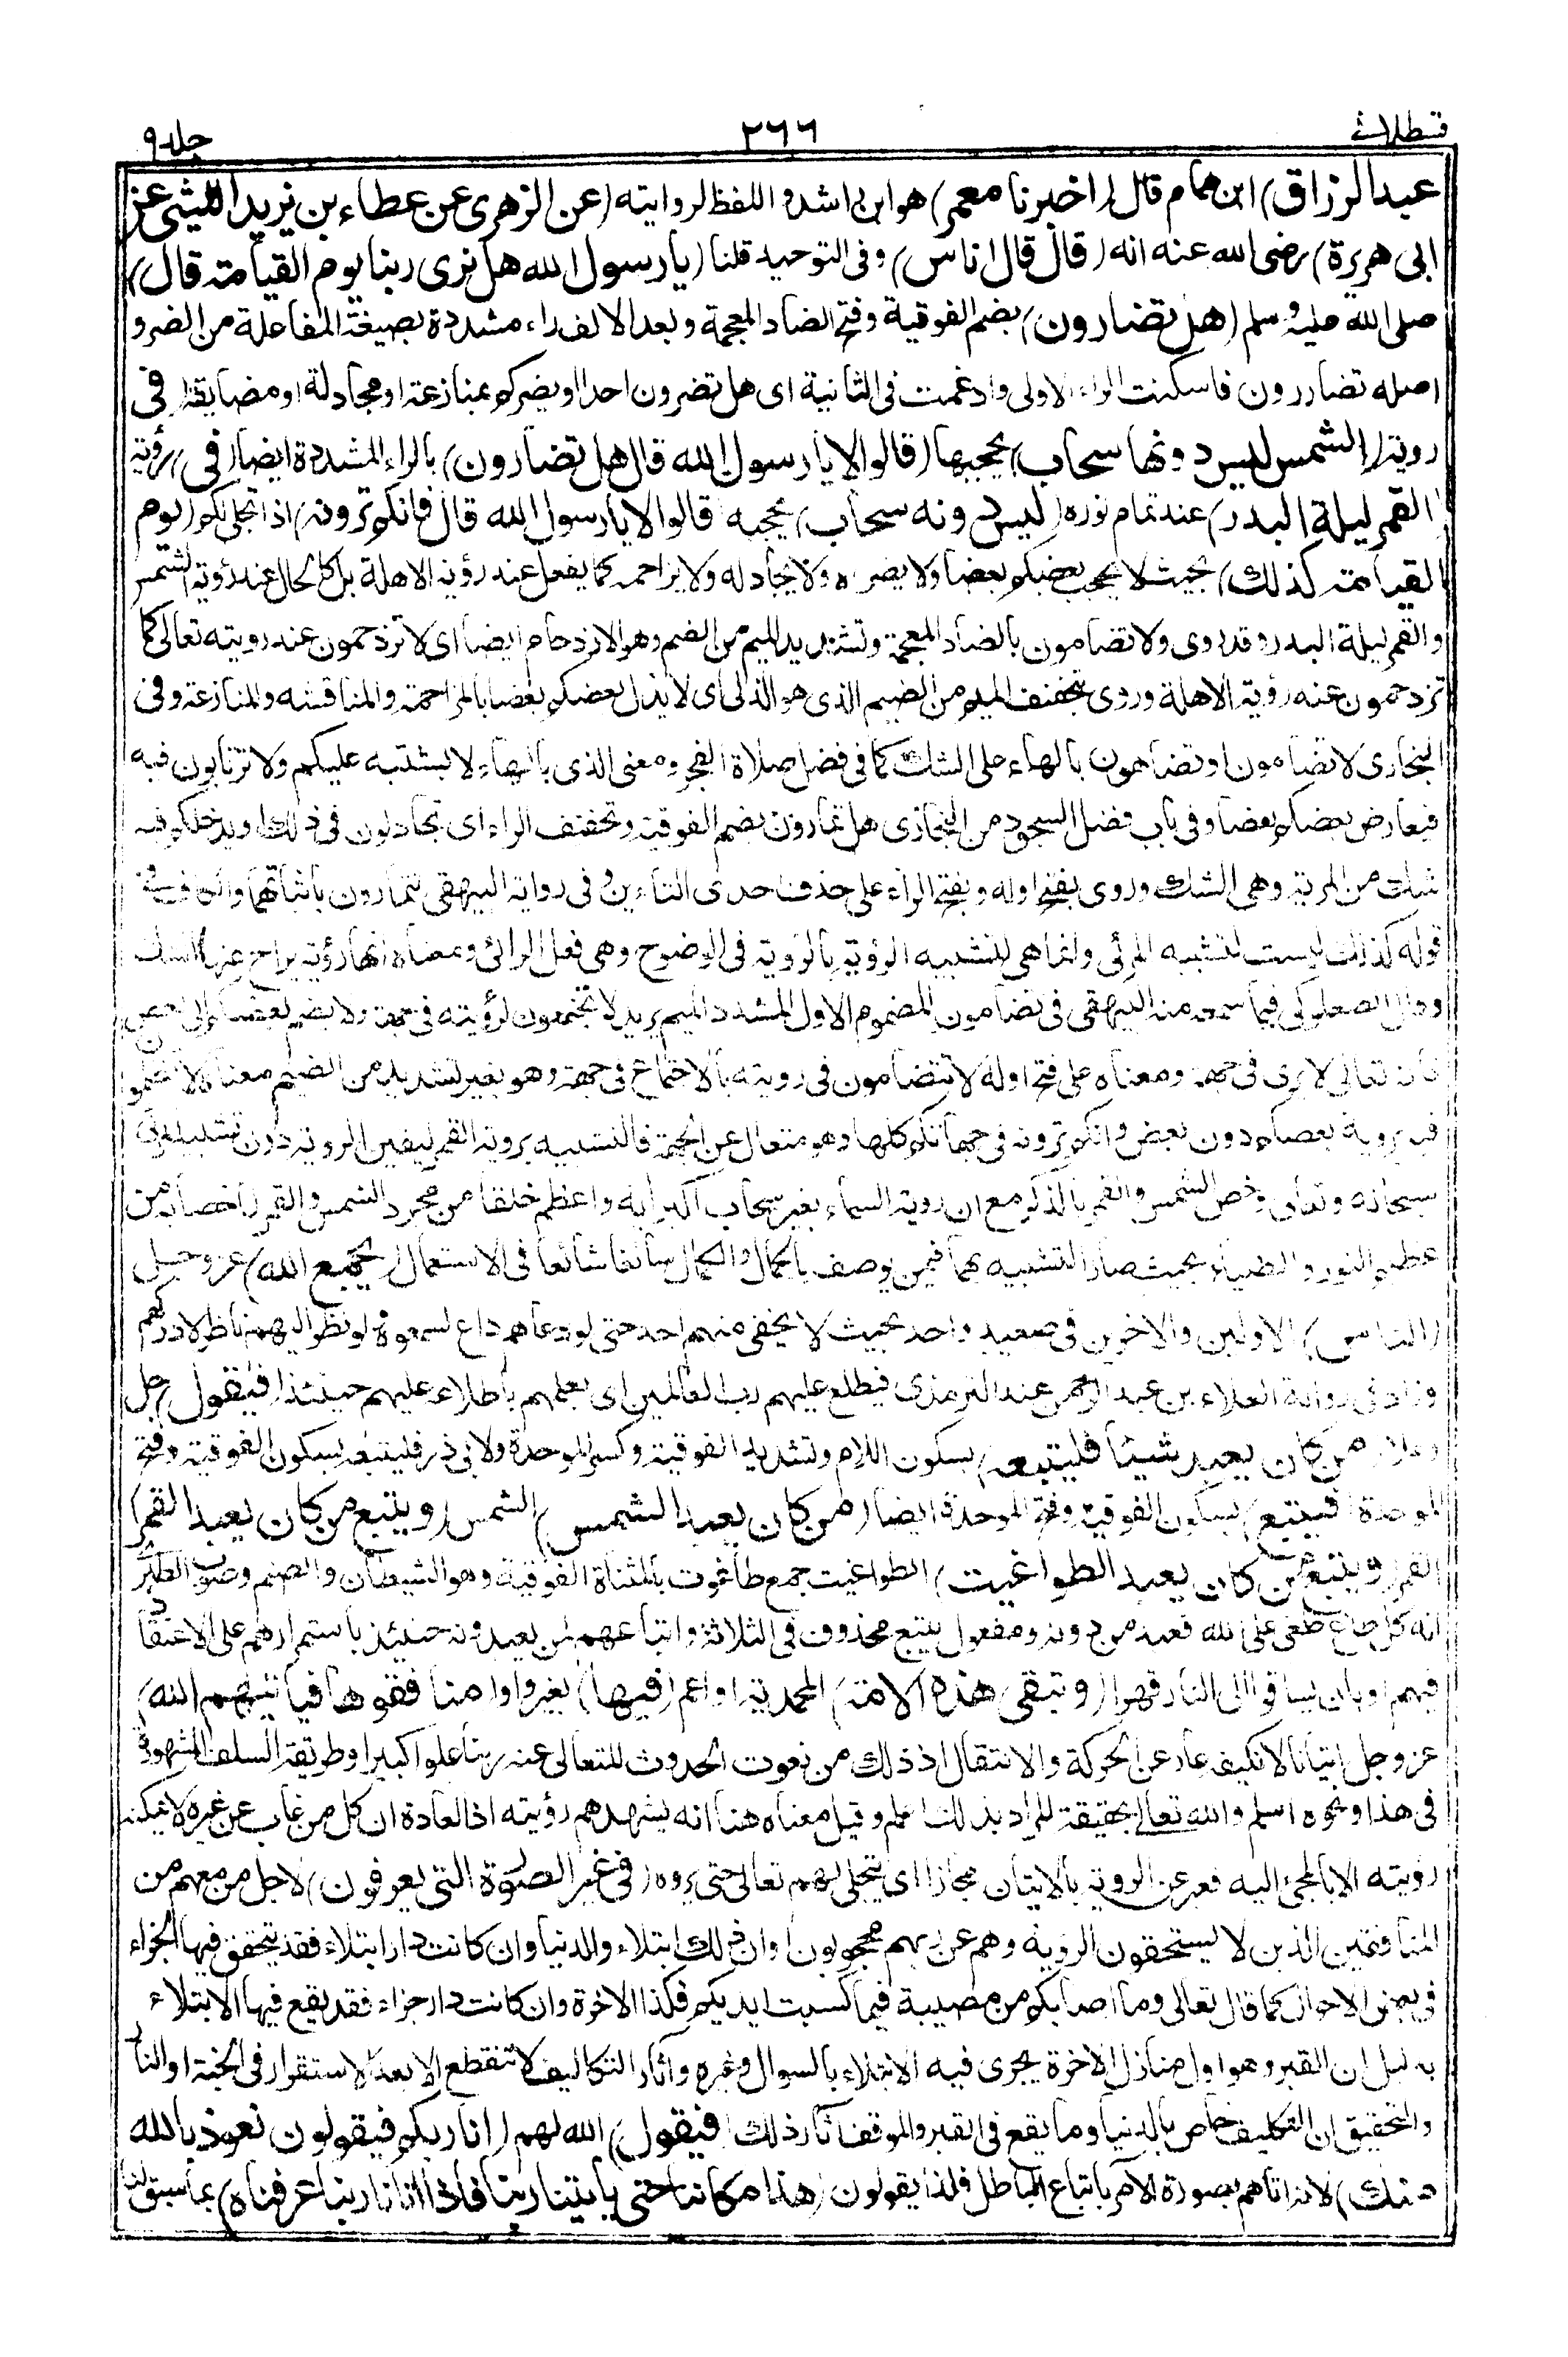 قسطلانے
٢٦٦
جلد ٩
عبد الرزاق) ابن همام قال (اخبرنا معمر) هو ابن راشد واللفظ لروايته (عن الزهرى عن عطاء بن يزيد الليثى عن
ابى هريرة) رضى الله عنه انه (قال قال اناس) وفى التوحيد قلنا (يا رسول الله هل نرى ربنا يوم القيامة قال)
صلى الله عليه وسلم (هل تضارون) بضم الفوقية وفتح الضاد المعجمة وبعد الالف راء مشددة بصيغة المفاعلة من الضر و
اصله تضاررون فاسكنت الراء الاولى وادغمت فى الثانية اى هل تضرون احدا او يضركم بمنازعة او مجادلة او مضايقة (فى
روية) الشمس ليس دونها سحاب) يحجبها (قالوا لا يا رسول الله قال هل تضارون) بالراء المشددة ايضا (فى) رؤية
القمر ليلة البدر) عند تمام نوره (ليس دونه سحاب) يحجبه قالوا لا يا رسول الله قال فانكم ترونه) اذا تجلى لكم (يوم
القيامة كذلك) بحيث لا يحجب بعضكم بعضا ولا يضره ولا يجادله ولا يزاحمه كما يفعل عند رؤية الاهلة بل كالحال عند رؤية الشمس
والقمر ليلة البدر وقد روى ولا تضامون بالضاد المعجمة وتشديد الميم من الضم وهو الازدحام ايضا اى لا تزدحمون عند رويته تعالى كما
تزدحمون عند رؤية الاهلة وروى بتخفيف الميم من الضيم الذى هو الذل اى لا يذل بعضكم بعضا بالمزاحمة والمناقشه والمنازعة وفى
البخارى لا تضامون او تضاهون بالهاء على الشك كما فى فضل صلاة الفجر ومعنى الذى بالهاء لا يشتبه عليكم ولا ترتابون فيه
فيعارض بعضكم بعضا وفى باب فضل السجود من البخارى هل تمارون بضم الفوقية وتخفيف الراء اى تجادلون فى ذلك او يدخلكم فيه
شك من المرية وهى الشك وروى بفتح اوله وبفتح الراء على حذف احدى التاءين وفى رواية البيهقى تتمارون باثباتهما والكاف فى
قوله كذلك ليست لتشبيه المرئى وانما هى لتشبيه الرؤية بالروية فى الوضوح وهى فعل الرائى ومعناه انها رؤية يزاح عنها الشك
وقال الصعلوكى فيما سمعه منه البيهقى فى تضامون المضموم الاول المشدد الميم يريد لا تجتمعون لرؤيته فى جهة ولا يضم بعضكم الى بعض
فانه تعالى لا يرى فى جهة ومعناه على فتح اوله لا تتضامون فى رويته بالاجتماع فى جهة وهو بغير تشديد من الضيم معناه لا تظلموا
فيه بروية بعضكم دون بعض وانكم ترونه فى جهاتكم كلها وهو متعال عن الجهة فالتشبيه بروية القمر ليقين الروية دون تشبيه المرئى
سبحانه وتعالى وخص الشمس والقمر بالذكر مع ان روية السماء بغير سحاب اكبر اية واعظم خلقا من مجرد الشمس والقمر لما خصا به من
عظيم النور والضياء بحيث صار التشبيه بهما فيمن يوصف بالجمال والكمال سائغا شائعا فى الاستعمال (يجمع الله) عز وجل
(الناس) الاولين والاخرين فى صعيد واحد بحيث لا يخفى منهم احد حتى لو دعاهم داع لسمعوه ولو نظر اليهم ناظر لادركهم
وزاد فى رواية العلاء بن عبد الرحمن عند الترمذى فيطلع عليهم رب العالمين اى يعلمهم باطلاعه عليهم حينئذ (فيقول) جل
وعلا (من كان يعبد شيئا فليتبعه) بسكون اللام وتشديد الفوقية وكسر الموحدة ولابى ذر فليتبعه بسكون الفوقية وفتح
الموحدة (فيتبع) بسكون الفوقية وفتح الموحدة ايضا (من كان يعبد الشمس) الشمس (ويتبع من كان يعبد القمر)
القمر (ويتبع من كان يعبد الطواغيت) الطواغيت جمع طاغوت بالمثناة الفوقية وهو الشيطان والصنم وصوب الطبرى
انه كل طاغ طغى على الله فعبد من دونه ومفعول يتبع محذوف فى الثلاثة واتباعهم لمن يعبدونه حينئذ باستمرارهم على الاعتقاد
فيهم او بان يساقوا الى النار قهرا (وتبقى هذه الامة) المحمدية او اعم (فيها) بغير واو (منافقوها فياتيهم الله)
عز وجل اتيانا لا نكيفه عار عن الحركة والانتقال اذ ذلك من نعوت الحدوث المتعالى عنه ربنا علوا كبيرا وطريقة السلف المشهورة
فى هذا ونحوه اسلم والله تعالى بحقيقة المراد بذلك اعلم وقيل معناه هنا انه يشهدهم رؤيته اذ العادة ان كل من غاب عن غيره لا يمكنه
رؤيته الا بالمجئ اليه فعبر عن الروية بالاتيان مجازا اى يتجلى لهم تعالى حتى يروه (فى غير الصورة التى يعرفون) لاجل من معهم من
المنافقين الذين لا يستحقون الروية وهم عن ربهم محجوبون او ان ذلك ابتلاء والدنيا وان كانت دار ابتلاء فقد يتحقق فيها الجزاء
فى بعض الاحوال كما قال تعالى وما اصابكم من مصيبة فبما كسبت ايديكم فكذا الاخرة وان كانت دار جزاء فقد يقع فيها الابتلاء
بدليل ان القبر وهو اول منازل الاخرة يجرى فيه الابتلاء بالسوال وغيره واثار التكاليف لا تنقطع الا بعد الاستقرار فى الجنة او النار
والتحقيق ان التكليف خاص بالدنيا وما يقع فى القبر والموقف اثار ذلك (فيقول) الله لهم (انا ربكم فيقولون نعوذ بالله
منك) لانه اتاهم بصورة الامر باتباع الباطل فلذا يقولون (هذا مكاننا حتى ياتينا ربنا فاذا اتانا ربنا عرفناه) بما سبق لنا